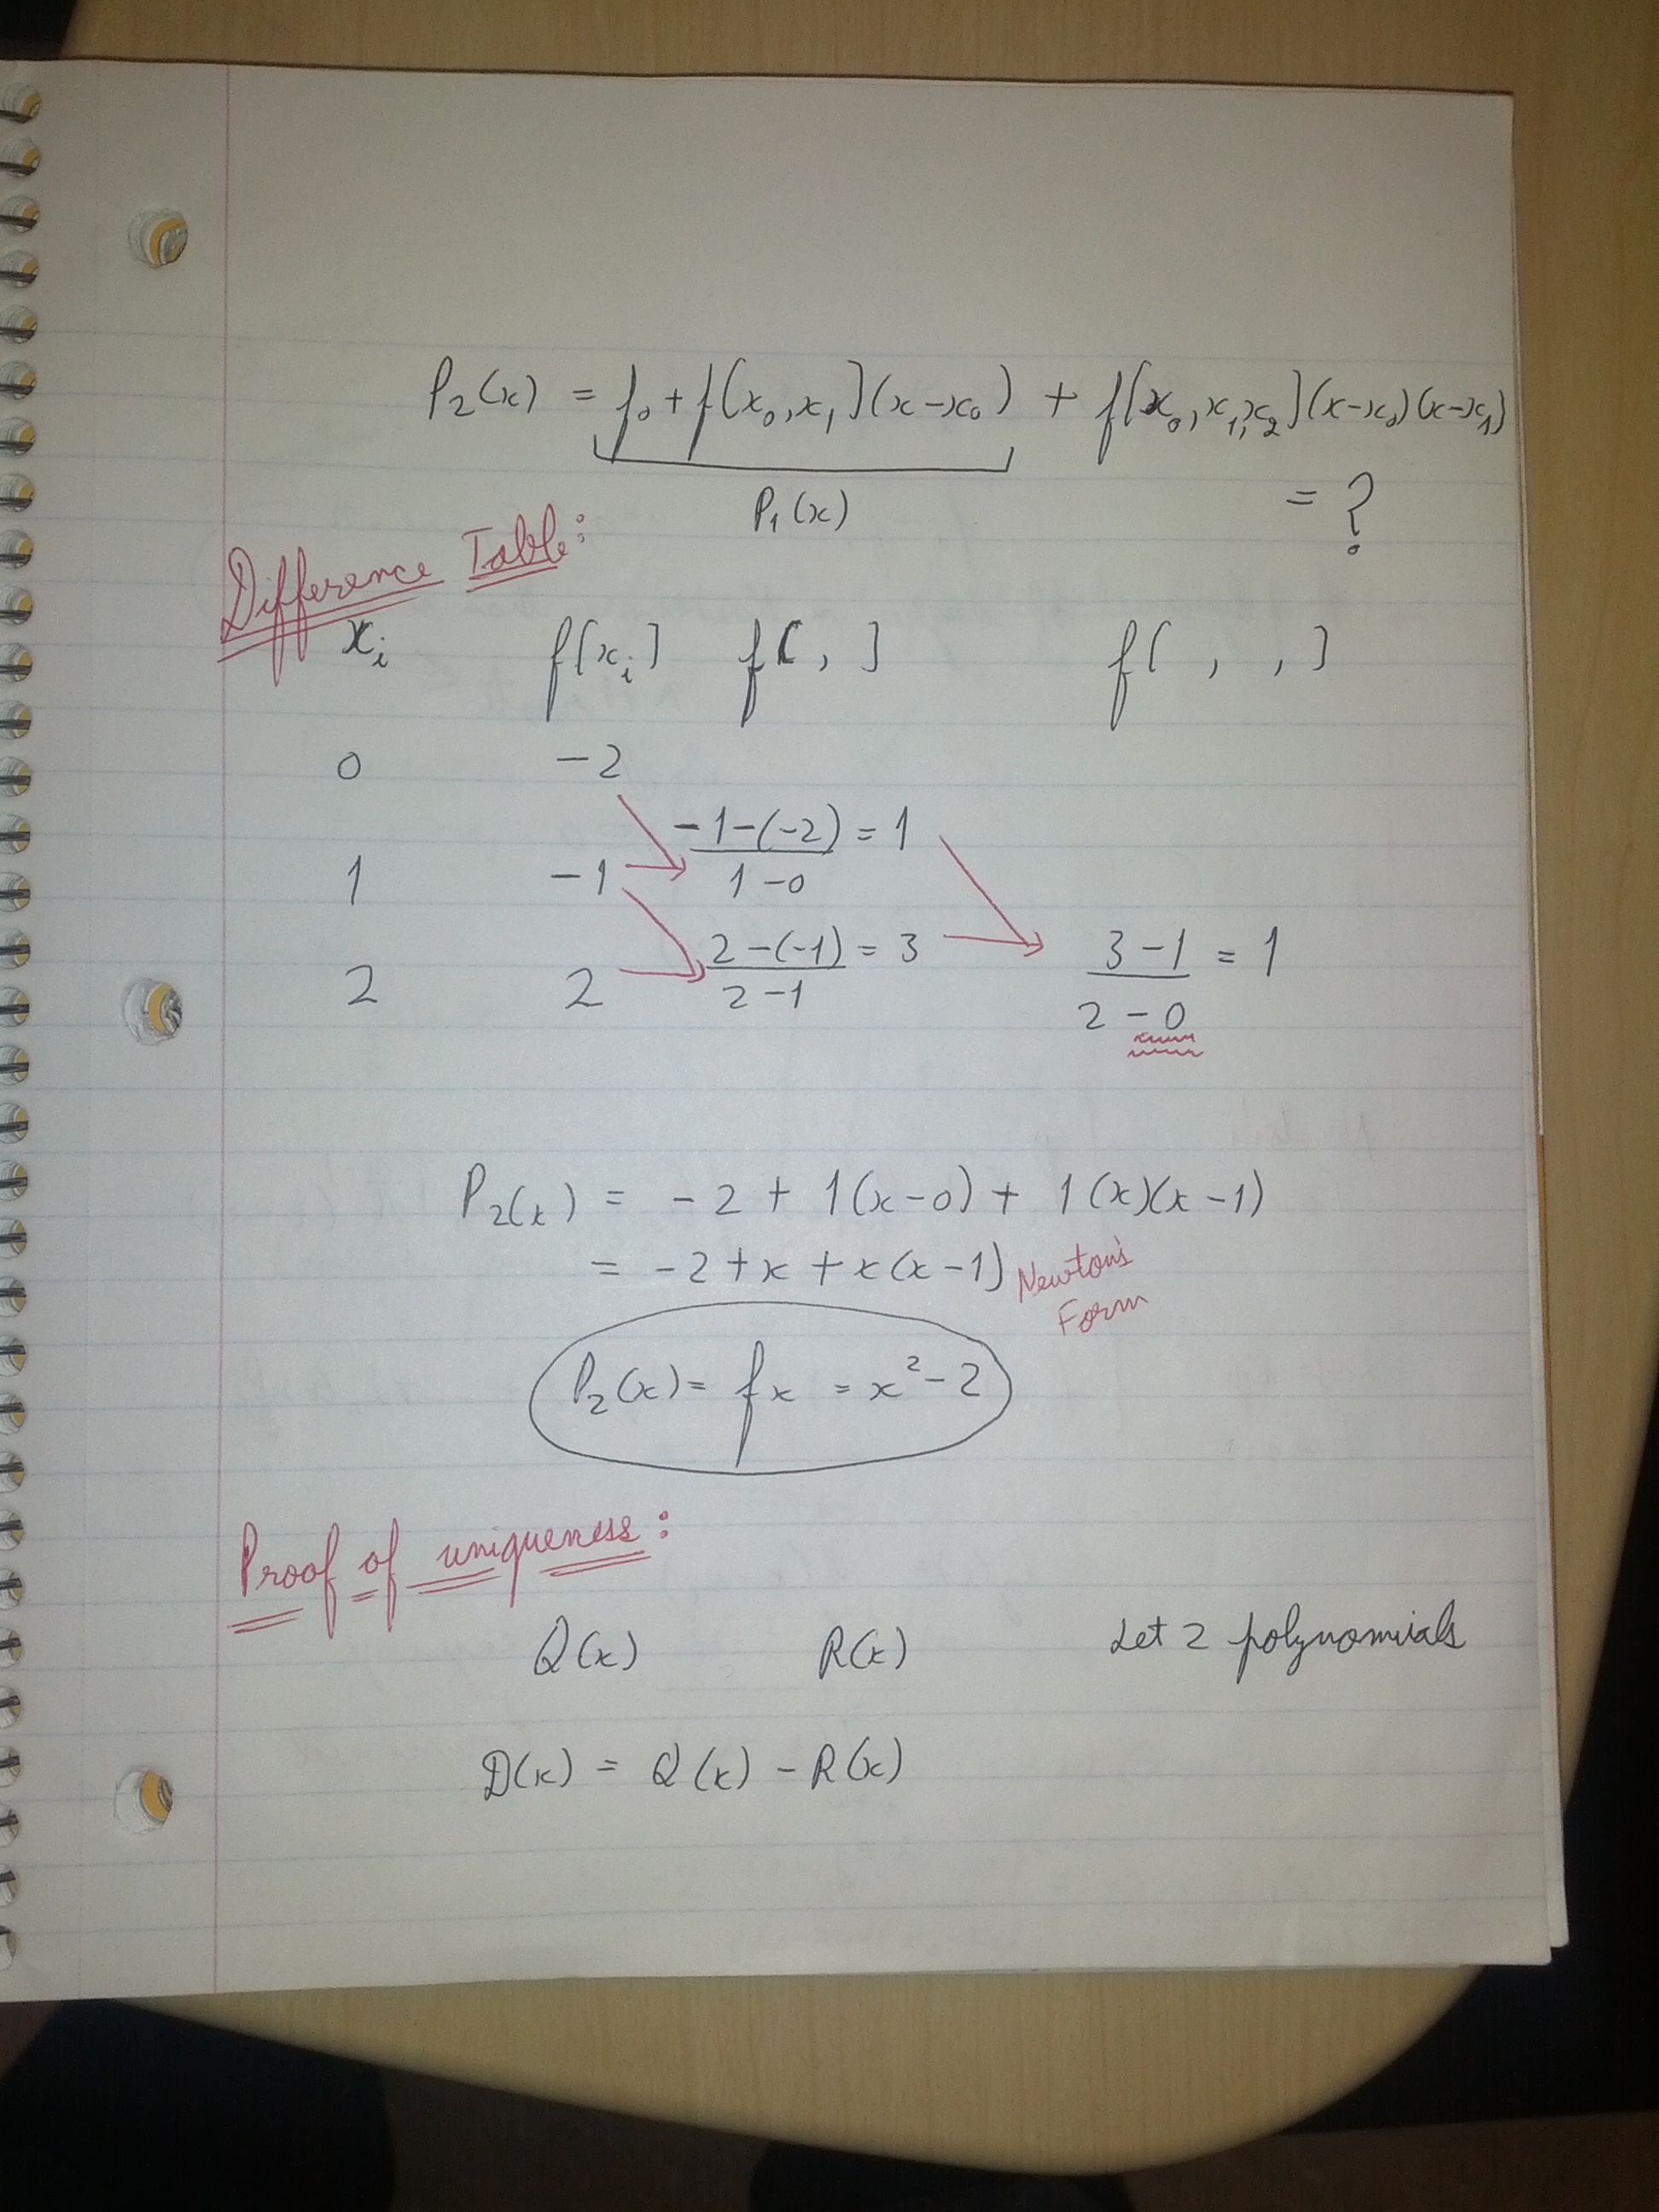 P₂(x) = f₀ + f[x₀, x₁](x-x₀) + f[x₀, x₁, x₂](x-x₀)(x-x₁)
P₁(x)
= ?
Difference Table:
xᵢ f[xᵢ] f[ , ] f[ , , ]
0 -2
-1-(-2) = 1
1 -1 1-0
2-(-1) = 3 3-1 = 1
2 2 2-1
2-0
P₂(x) = -2 + 1(x-0) + 1(x)(x-1)
= -2 + x + x(x-1) Newton's
Form
P₂(x) = fx = x²-2
Proof of uniqueness:
Q(x) R(x) Let 2 polynomials
D(x) = Q(x) - R(x)